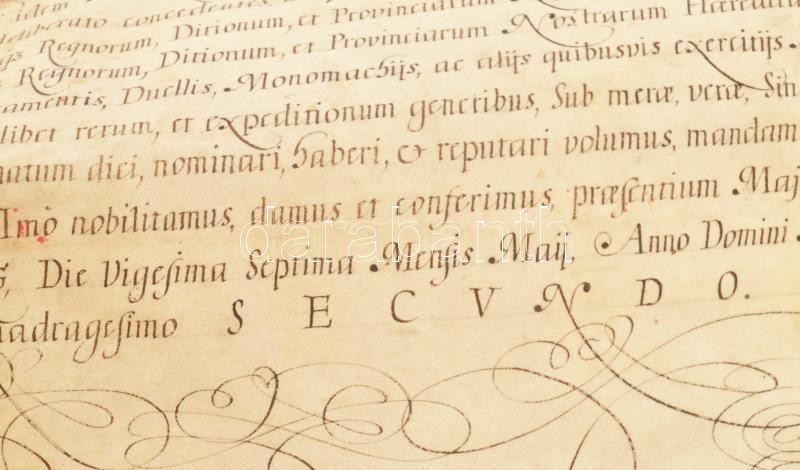 idem
deliberato concedentes
Regnorum, Ditionum, et Provinciarum
Regnorum, Ditionum, et Provinciarum Nostrarum Hæredita
amentis, Duellis, Monomachijs, ac alijs quibusvis exercitijs
libet rerum, et expeditionum generibus, Sub meræ, veræ, Sin
natum dici, nominari, haberi, & reputari volumus, mandam
Imò nobilitamus, damus et conferimus, præsentium Maj
Die Vigesima Septima Mensis Maij, Anno Domini
uadragesimo SECVNDO.
darabanth